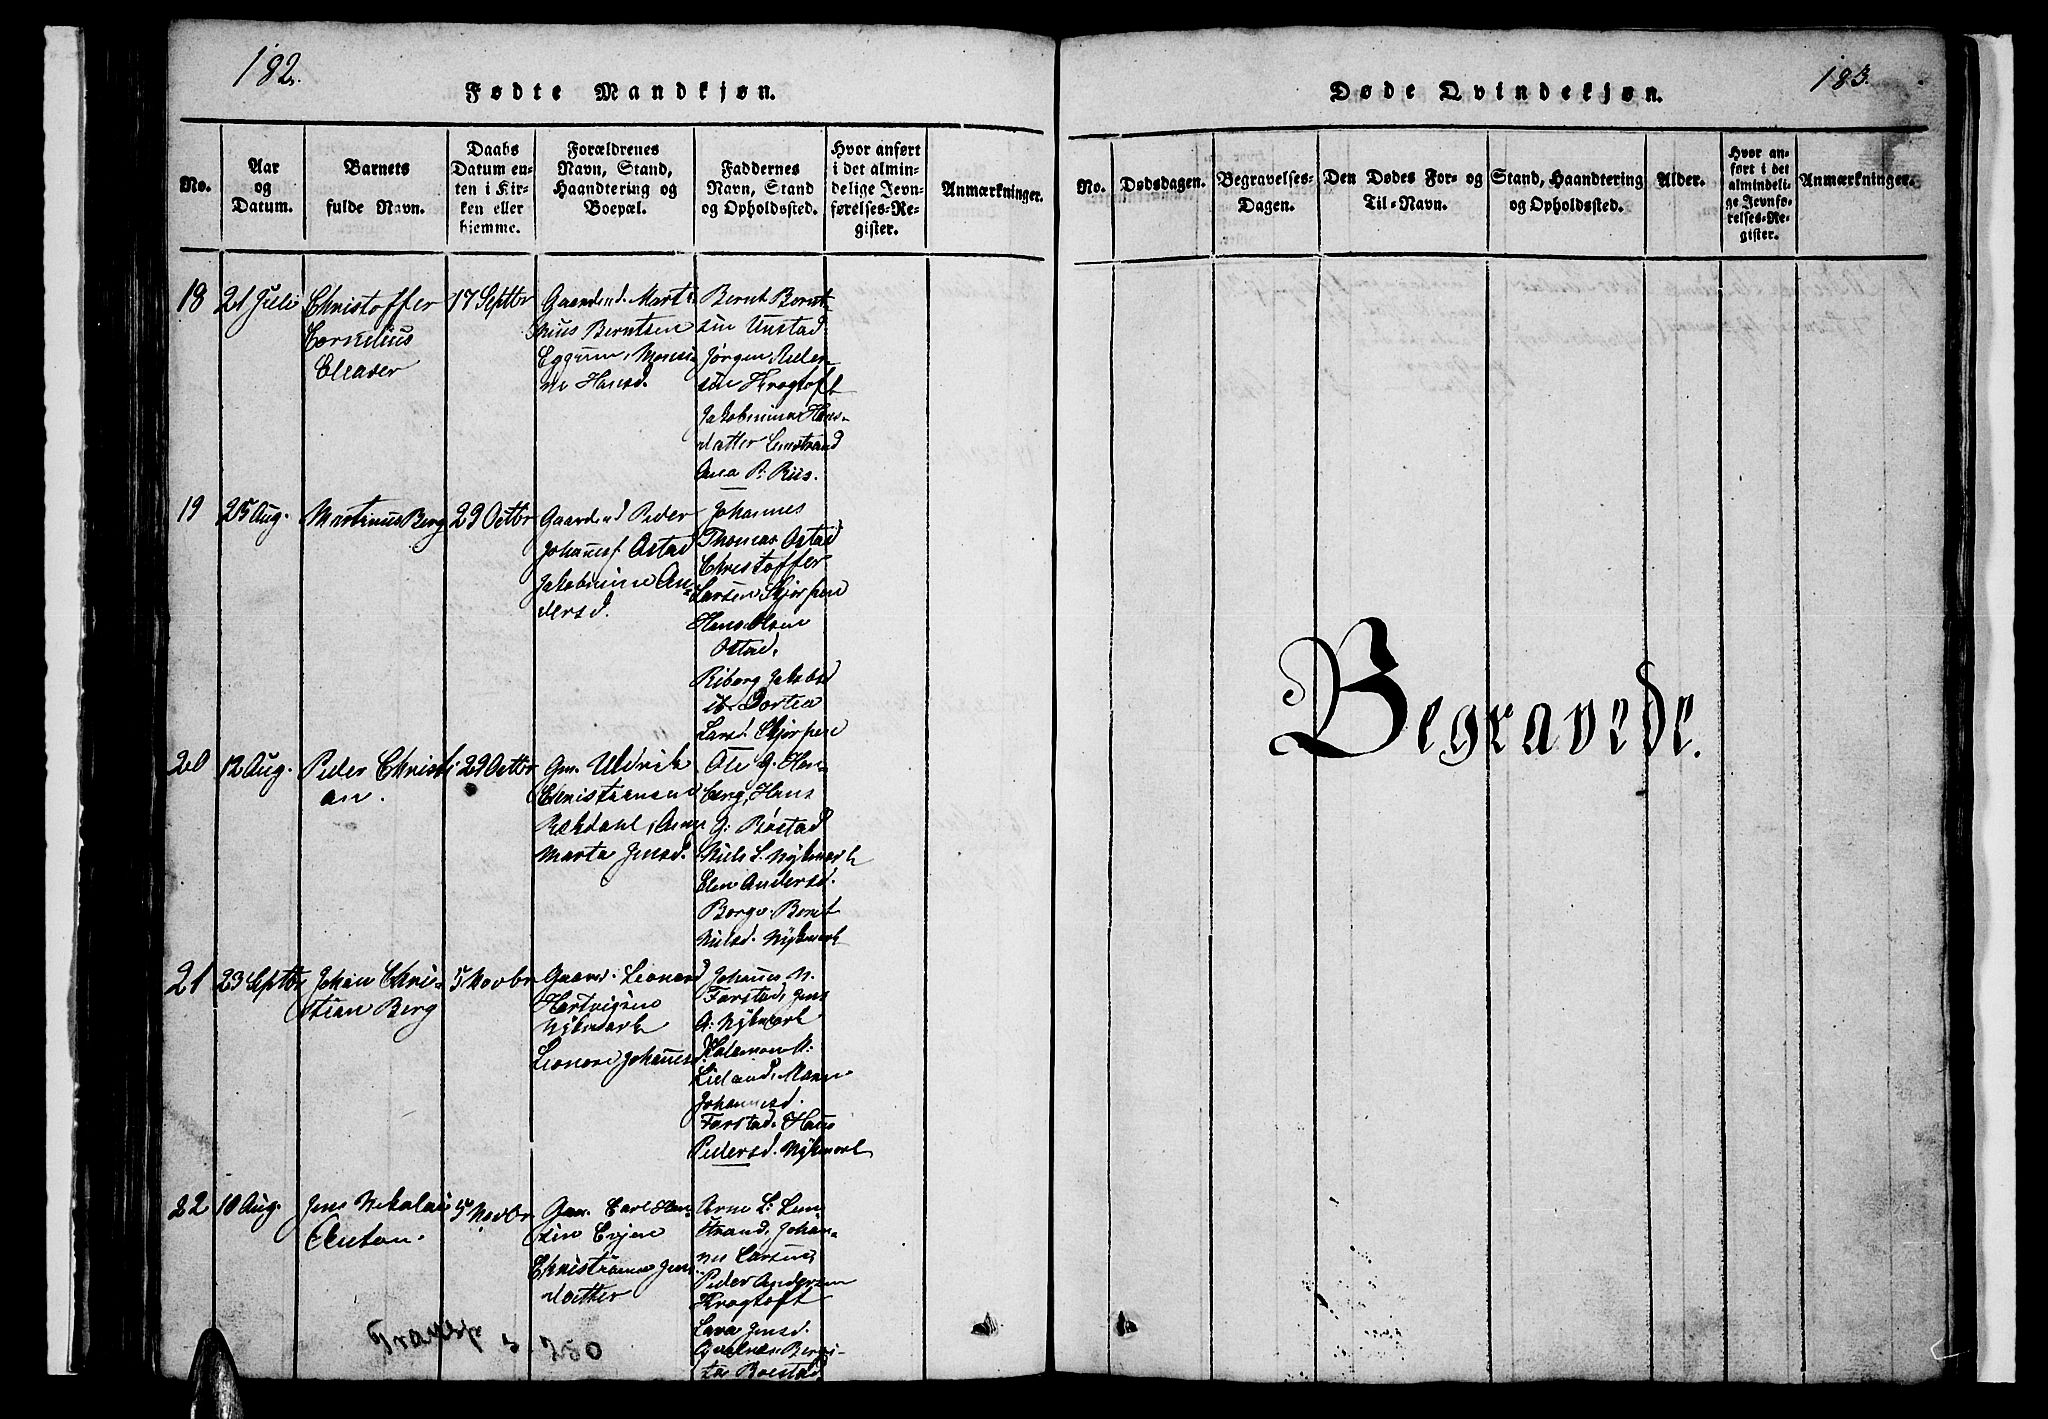 182.
Fødte Mandkjøn.
No.
Aar og Datum.
Barnets fulde Navn.
Daabs Datum enten i Kirken eller hjemme.
Forældrenes Navn, Stand, Haandtering og Boepæl.
Faddernes Navn, Stand og Opholdssted.
Hvor anført i det almindelige Jevnførelses-Register.
Anmærkninger.
18
21 Juli
Christoffer
Cornelius
Eleaser
17 Septbr
Gaardmd. Marti
nus Berntsen
Eggum,
ne Hansd.
Bernt Bernt-
sen Unstad
Jørgen Peder-
sen Krogtoft
Jakobmina Hans-
datter Limstrand
Ana P. Riis.
19
25 Aug.
Martinus Berg
29 Octbr
Gaardmd Peder
Johanes. Ostad
Jakobmine An-
dersd.
Johannes
Thomas Ostad
Christoffer
Larsen Skjørpen
Hans Olsen
Ostad,
Riborg Jakobsd
ib. Dortea
Larsd. Skjørpen
20
12 Aug.
Peder Christi
an.
29 Octbr
Gm. Uldrik
Christiansen
Rækdahl, Ane
Marta Jensd.
Ole G. Han-
berg, Hans
G. Bøstad
Niels L. Nykmark
Elen Andersd.
Borge. Bernt
Nielsd. Nykmark
21
23 Septbr
Johan Chri-
stian Berg
5 Novbr
Gaard. Leonard
Hartvigsen
Nykmark
Leonare Johanesd.
Johanes N.
Farstad, Jens
A. Nykmark
Salamon M.
Lieland, Maren
Johannesd.
Farstad, Hans
Pedersd. Nykmark
22
10 Aug.
Jens Nikolai
Anton.
5 Novbr
Gm. Carl Han-
sen Evjen
Christianne Jens
datter
Arne L. Lim-
strand, Johan-
nes Larsen,
Peder Andersen
Krogtoft
Lava Jensd.
Bergi-
ta Bolstad
250
183.
Døde Qvindekjøn.
No.
Dødsdagen.
Begravelses-Dagen.
Den Dødes For- og Til-Navn.
Stand, Haandtering og Opholdssted.
Alder.
Hvor anført i det almindelige Jevnførelses-Register.
Anmærkninger.
Begravede.